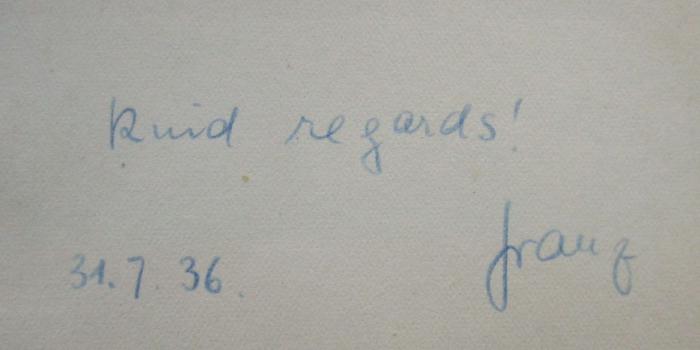 Kind regards!
Franz
31.7.36.